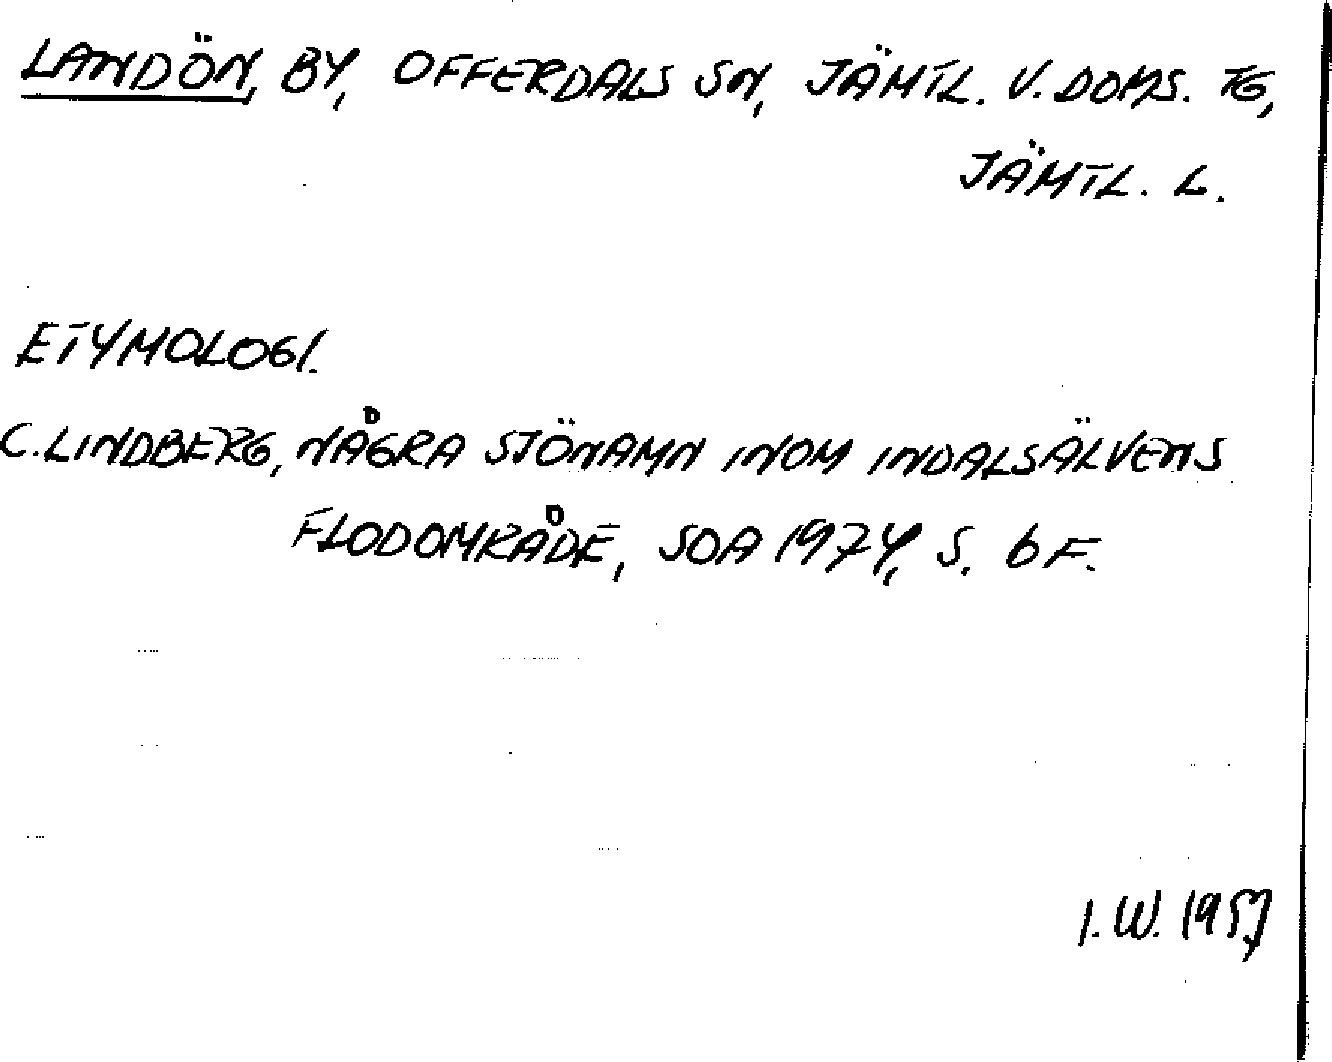 LANDÖN, BY, OFFERDALS SN, JÄMTL. V. DOMS. TG,
JÄMTL. L.
ETYMOLOGI.
C. LINDBERG, NÅGRA SJÖNAMN INOM INDALSÄLVENS
FLODOMRÅDE, SOA 1974, S. 6 F.
I. W.